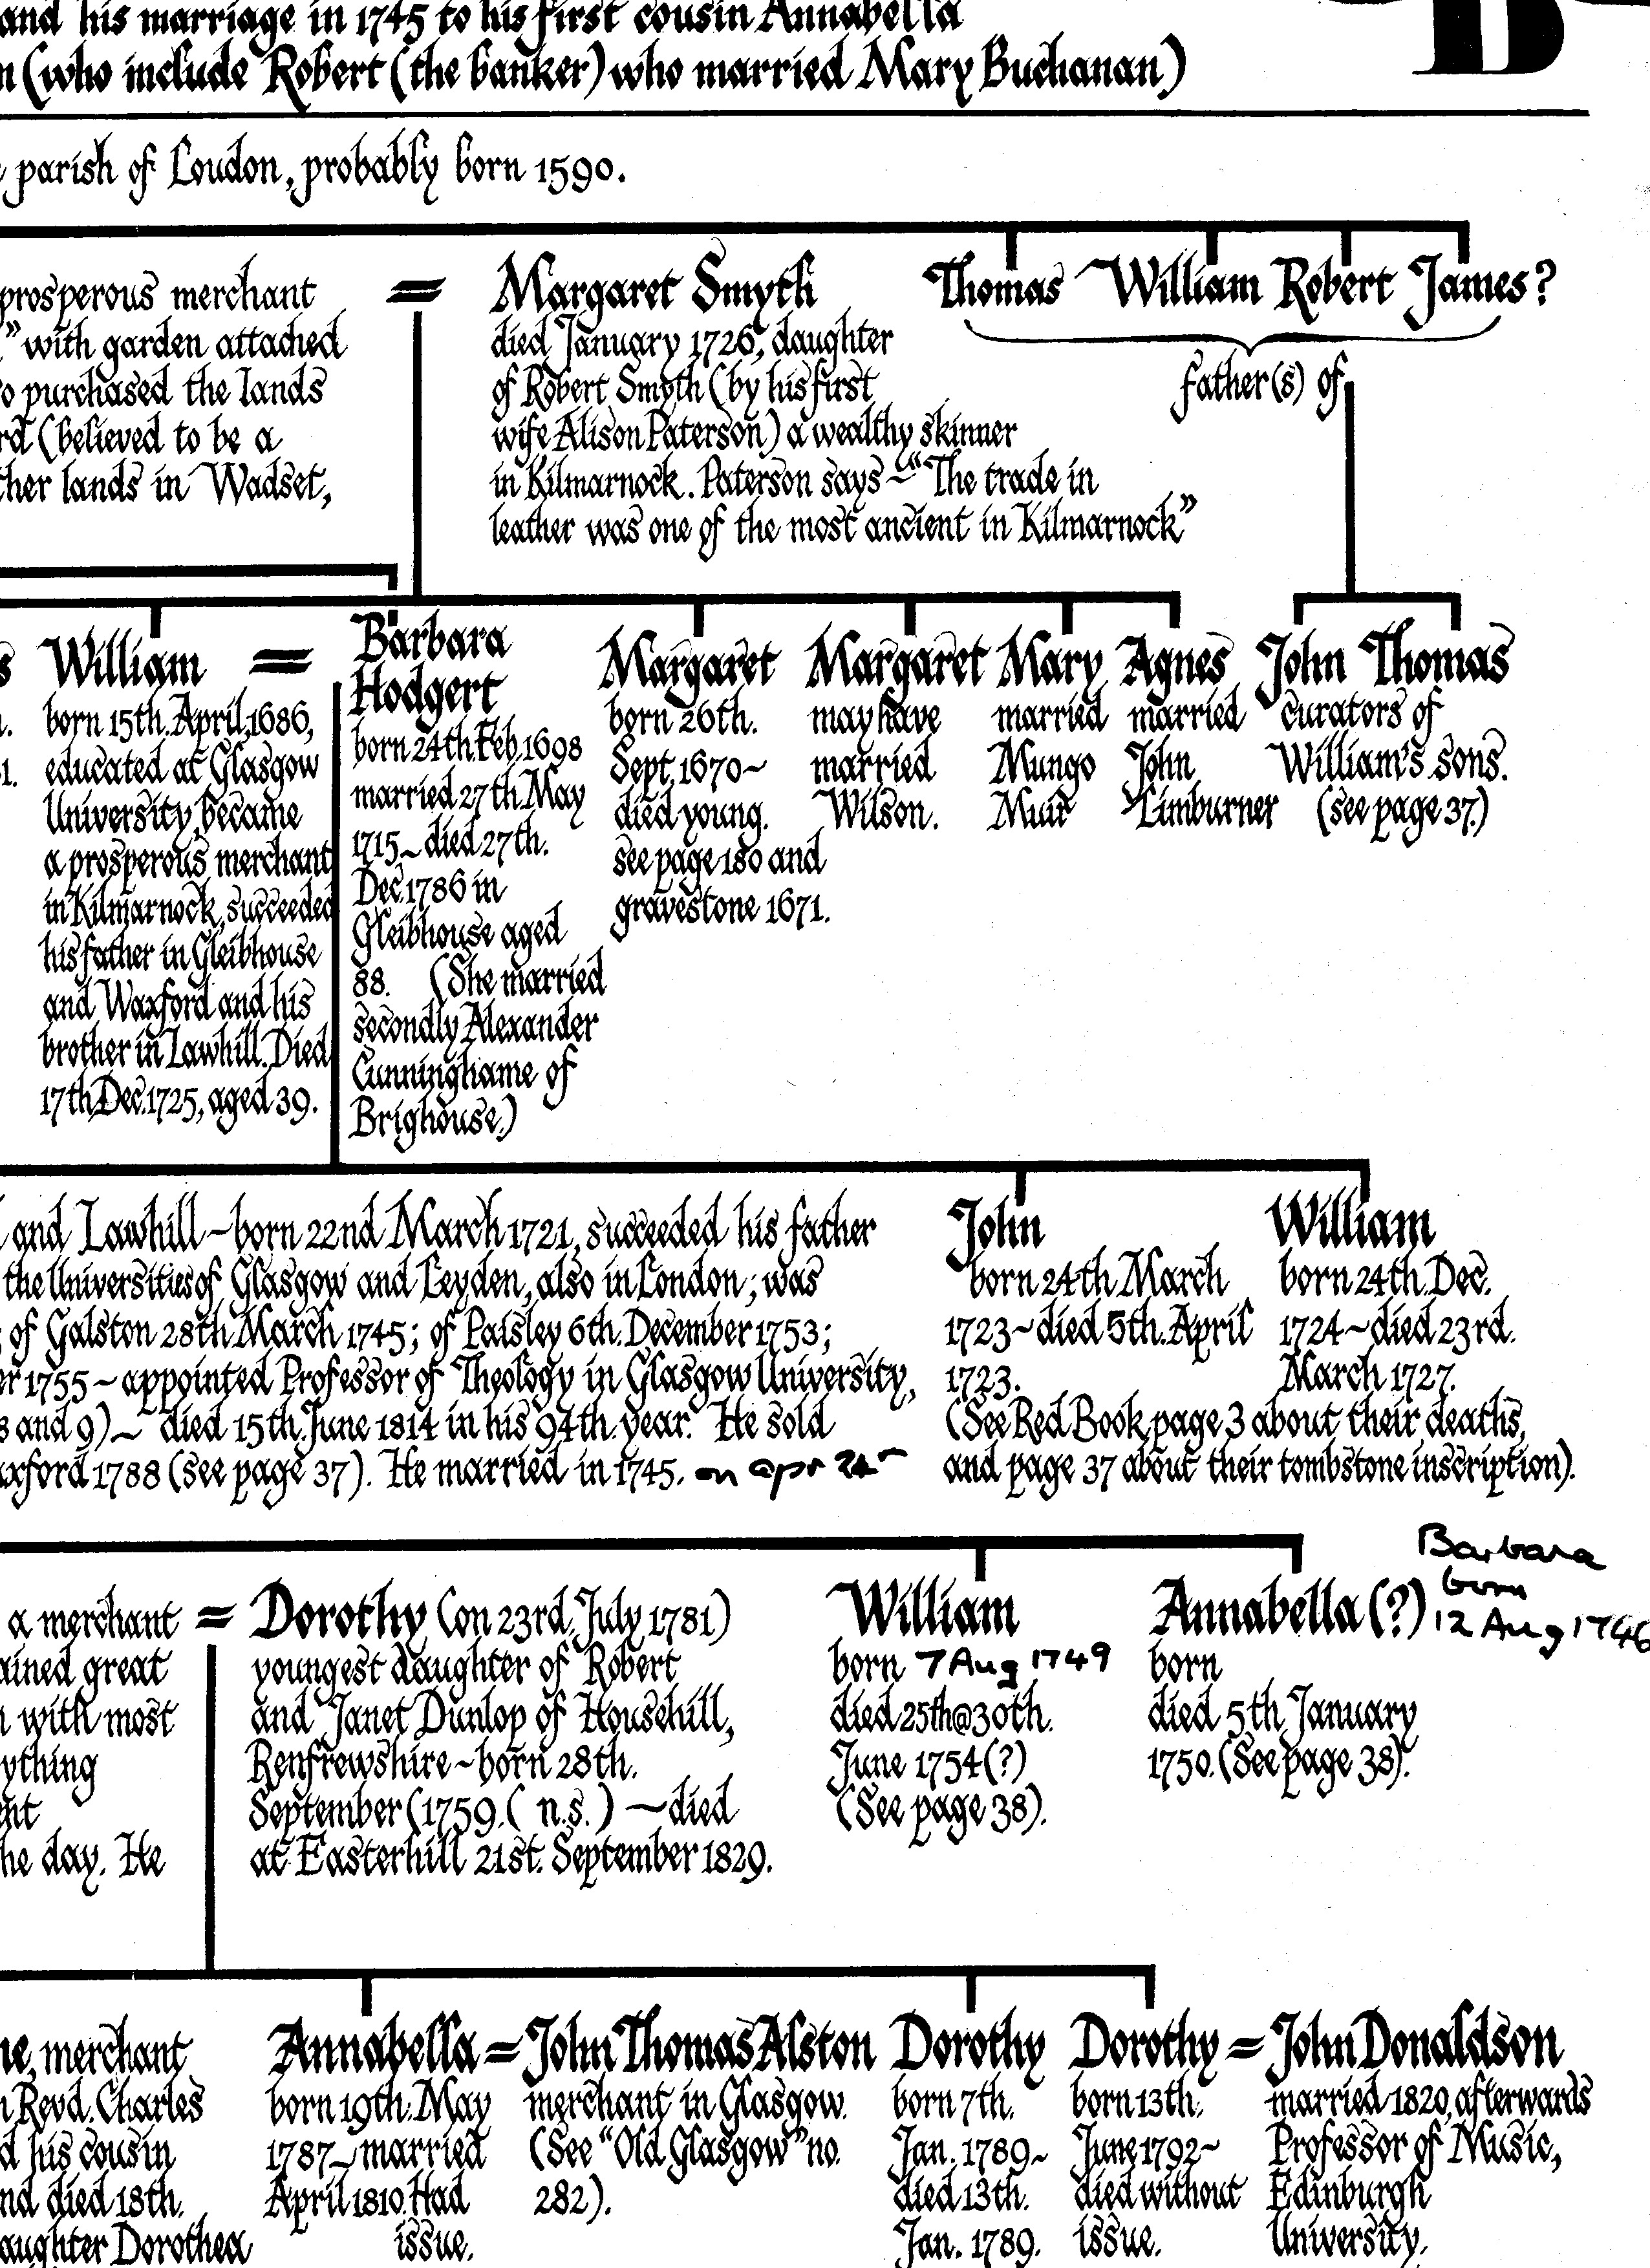 and his marriage in 1745 to his first cousin Annabella
(who include Robert (the banker) who married Mary Buchanan)
B
parish of Loudon, probably born 1590.
prosperous merchant
" with garden attached
purchased the lands
(believed to be a
lands in Wadset,
=
Margaret Smyth
died January 1726, daughter
of Robert Smyth (by his first
wife Alison Paterson) a wealthy skinner
in Kilmarnock. Paterson says ~ "The trade in
leather was one of the most ancient in Kilmarnock"
Thomas William Robert James?
father(s) of
William =
born 15th. April, 1686,
educated at Glasgow
University, became
a prosperous merchant
in Kilmarnock, succeeded
his father in Gleibhouse
and Waxford and his
brother in Lawhill. Died
17th Dec. 1725, aged 39.
Barbara
Hodgert
born 24th. Feb. 1698
married 27th. May
1715 ~ died 27th.
Dec. 1786 in
Gleibhouse aged
88. (She married
secondly Alexander
Cunninghame of
Brighouse.)
Margaret
born 26th.
Sept. 1670 ~
died young.
see page 180 and
gravestone 1671.
Margaret
may have
married
Wilson.
Mary
married
Mungo
Muir
Agnes
married
John
Limburner
John Thomas
curators of
William's sons.
(see page 37.)
and Lawhill ~ born 22nd March 1721, succeeded his father
the Universities of Glasgow and Leyden, also in London; was
of Galston 28th March 1745; of Paisley 6th. December 1753;
1755 ~ appointed Professor of Theology in Glasgow University,
and 9) ~ died 15th. June 1814 in his 94th. year. He sold
1788 (see page 37). He married in 1745. on apr 24
John
born 24th March
1723 ~ died 5th. April
1723.
William
born 24th. Dec.
1724 ~ died 23rd.
March 1727.
(See Red Book, page 3 about their deaths,
and page 37 about their tombstone inscription).
a merchant
great
with most
the day. He
= Dorothy (on 23rd. July 1781)
youngest daughter of Robert
and Janet Dunlop of Househill,
Renfrewshire ~ born 28th.
September (1759. ( n.s. ) ~ died
at Easterhill 21st. September 1829.
William
born 7 Aug 1749
died 25th @ 30th.
June 1754 (?)
(See page 38).
Annabella (?)
born
died 5th January
1750. (See page 38).
Barbara
born
12 Aug 1746
merchant
Revd. Charles
his cousin
died 18th.
Dorothea
Annabella =
born 19th. May
1787 ~ married
April 1810. Had
issue.
John Thomas Alston
merchant in Glasgow.
(See "Old Glasgow" no.
282).
Dorothy
born 7th.
Jan. 1789 ~
died 13th.
Jan. 1789.
Dorothy =
born 13th.
June 1792 ~
died without
issue.
John Donaldson
married 1820, afterwards
Professor of Music,
Edinburgh
University.